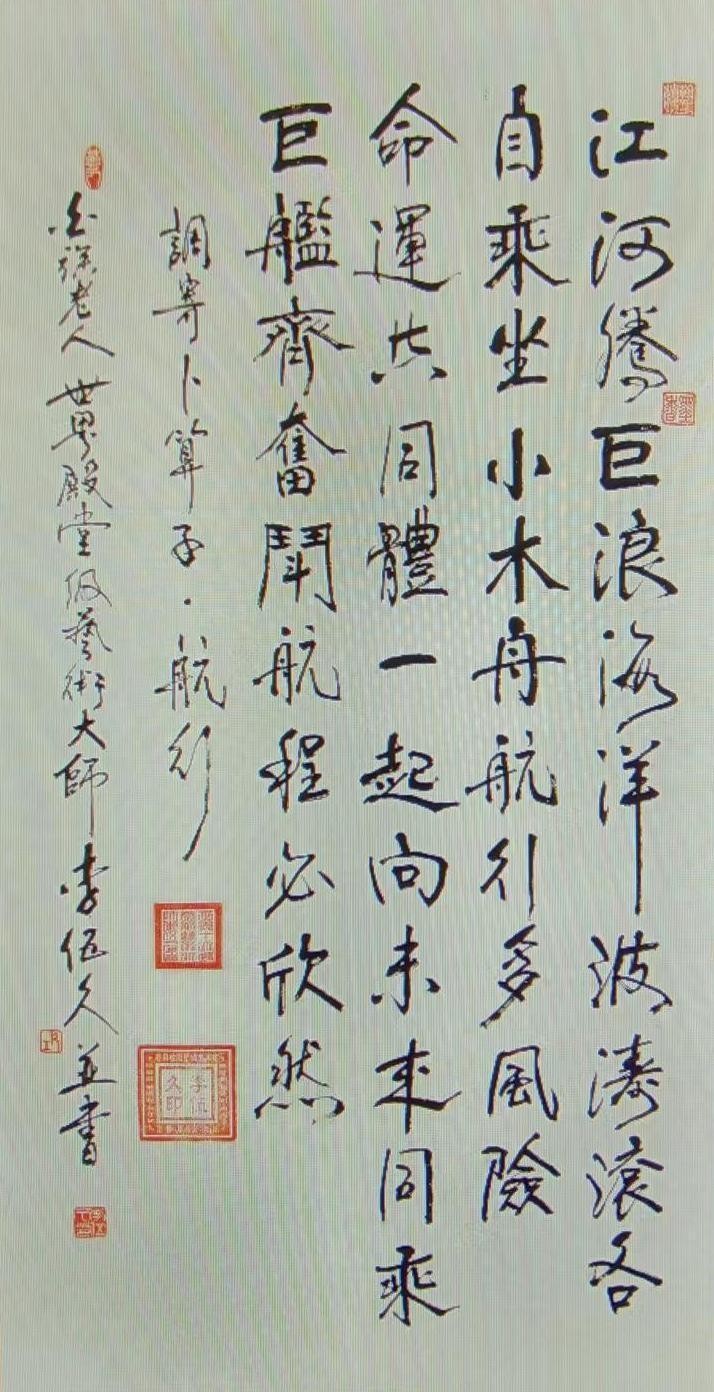 江河騰巨浪海洋波濤滾各
自乘坐小木舟航行多風險
命運共同體一起向未来同乘
巨艦齊奮鬪航程必欣然
調寄卜算子·航行
老人世界殿堂级藝術大師李伍久並書
李伍久印